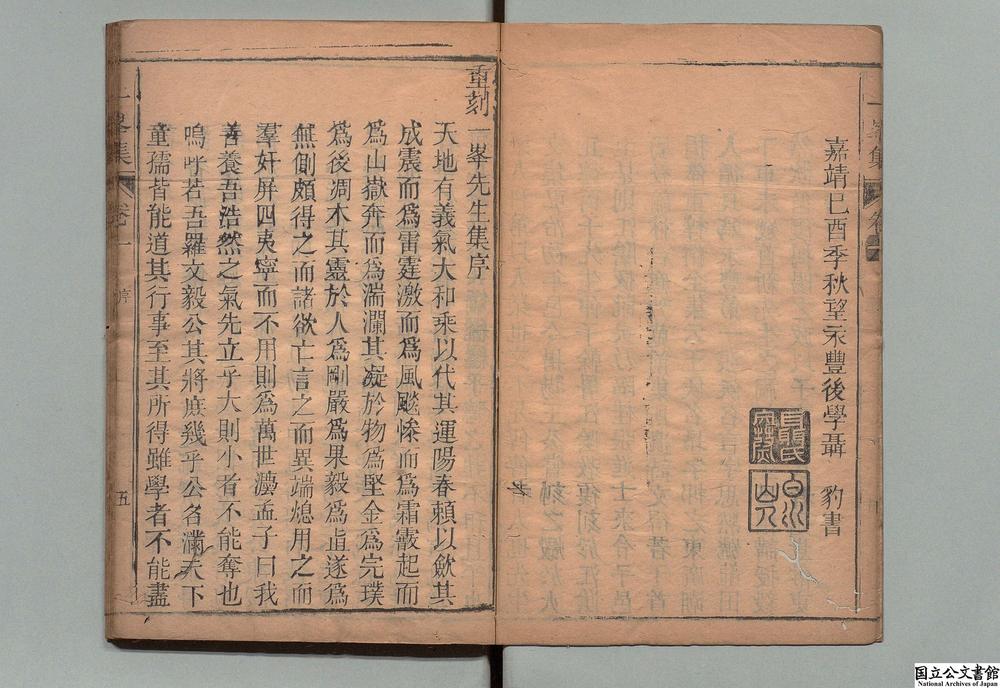 嘉靖己酉季秋望永豐後學聶　豹書
重刻一峯先生集序
天地有義氣大和乘以代其運陽春賴以歛其
成震而爲雷霆激而爲風飈慘而爲霜霰起而
爲山嶽奔而爲湍瀾其凝於物爲堅金爲完璞
爲後凋木其靈於人爲剛嚴爲果毅爲直遂爲
無側頗得之而諸欲亡言之而異端熄用之而
羣奸屏四夷寧而不用則爲萬世灋孟子曰我
善養吾浩然之氣先立乎大則小者不能奪也
嗚呼若吾羅文毅公其將庶幾乎公名滿天下
童孺皆能道其行事至其所得雖學者不能盡
一峯集
卷一
序
五
国立公文書館
National Archives of Japan